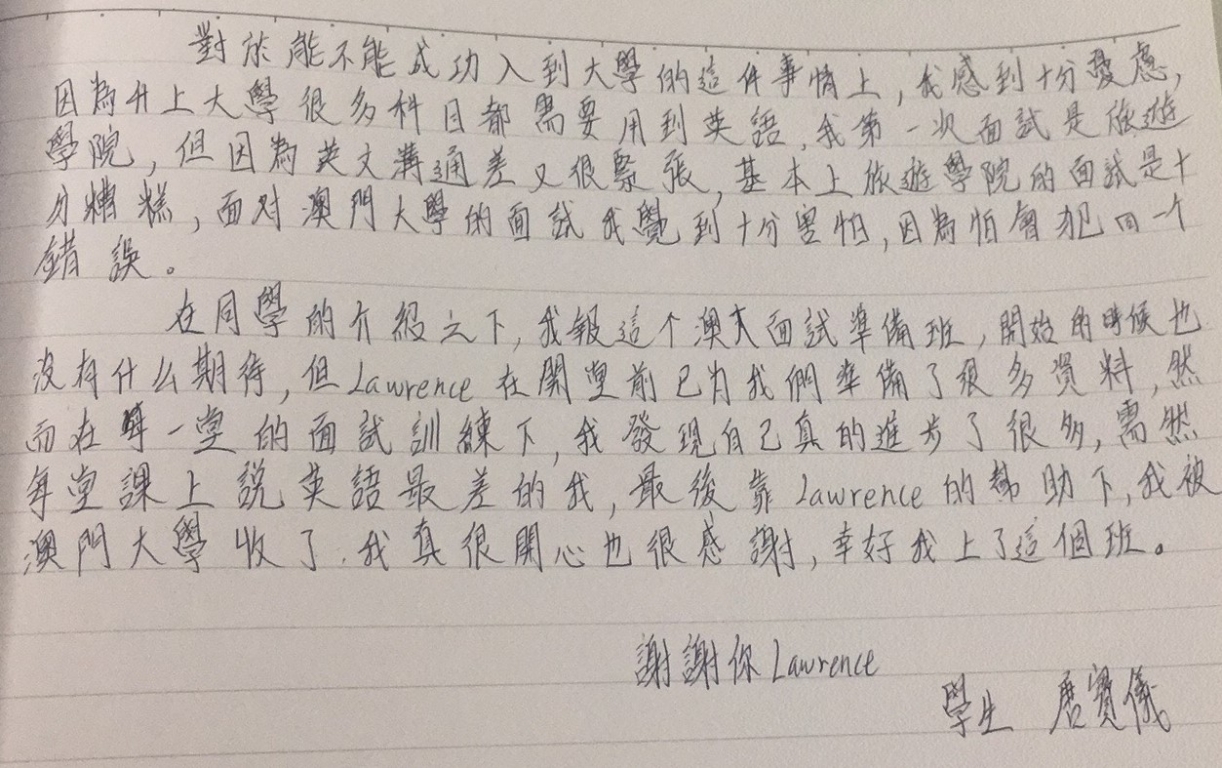 對於能不能成功入到大學的這件事情上，我感到十分憂慮，
因為升上大學很多科目都需要用到英語，我第一次面試是旅遊
學院，但因為英文溝通差又很緊張，基本上旅遊學院的面試是十
分糟糕，面对澳門大學的面試我覺到十分害怕，因為怕會犯回一个
錯誤。
在同學的介紹之下，我報這个澳大面試準備班，開始的時候也
沒有什么期待，但Lawrence在開堂前已为我們準備了很多資料，然
而在每一堂的面試訓練下，我發現自己真的進步了很多，需然
每堂課上說英語最差的我，最後靠Lawrence的幫助下，我被
澳門大學收了．我真很開心也很感謝，幸好我上了這個班。
謝謝你Lawrence
學生 唐寶儀